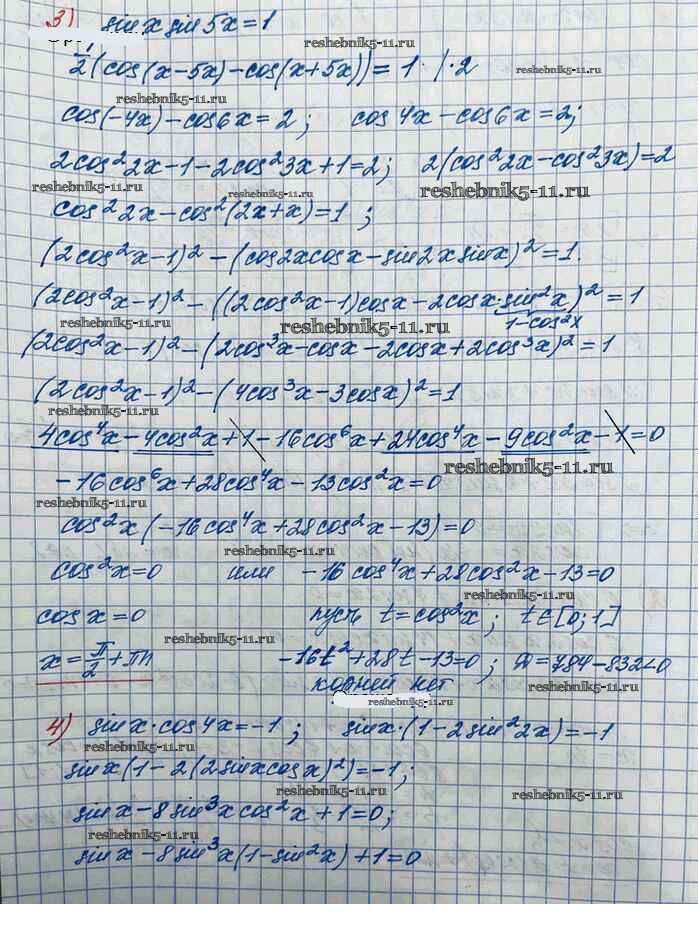 3) sin x sin 5x = 1
reshebnik5-11.ru
1/2 (cos(x-5x) - cos(x+5x)) = 1 · |·2
reshebnik5-11.ru
cos(-4x) - cos 6x = 2; cos 4x - cos 6x = 2;
reshebnik5-11.ru
2cos²2x - 1 - 2cos²3x + 1 = 2; 2(cos²2x - cos²3x) = 2
reshebnik5-11.ru reshebnik5-11.ru reshebnik5-11.ru
cos²2x - cos²(2x+x) = 1;
(2cos²x - 1)² - (cos2x cosx - sin2x sinx)² = 1.
reshebnik5-11.ru reshebnik5-11.ru
(2cos²x - 1)² - ((2cos²x - 1)cosx - 2cosx · sin²x)² = 1
reshebnik5-11.ru 1 - cos²x
(2cos²x - 1)² - (2cos³x - cosx - 2cosx + 2cos³x)² = 1
(2cos²x - 1)² - (4cos³x - 3cosx)² = 1
reshebnik5-11.ru reshebnik5-11.ru
4cos⁴x - 4cos²x + 1 - 16cos⁶x + 24cos⁴x - 9cos²x - 1 = 0
reshebnik5-11.ru
-16cos⁶x + 28cos⁴x - 13cos²x = 0
reshebnik5-11.ru
cos²x (-16cos⁴x + 28cos²x - 13) = 0
reshebnik5-11.ru
cos²x = 0 или -16cos⁴x + 28cos²x - 13 = 0
reshebnik5-11.ru
cos x = 0 пусть t = cos²x; t ∈ [0; 1]
reshebnik5-11.ru
x = π/2 + πn -16t² + 28t - 13 = 0; D = 784 - 832 < 0
reshebnik5-11.ru
корней нет
reshebnik5-11.ru
4) sinx · cos4x = -1; sinx · (1 - 2sin²2x) = -1
reshebnik5-11.ru
sinx (1 - 2(2sinx cosx)²) = -1;
reshebnik5-11.ru reshebnik5-11.ru
sinx - 8sin³x cos²x + 1 = 0;
reshebnik5-11.ru
sinx - 8sin³x (1 - sin²x) + 1 = 0
reshebnik5-11.ru